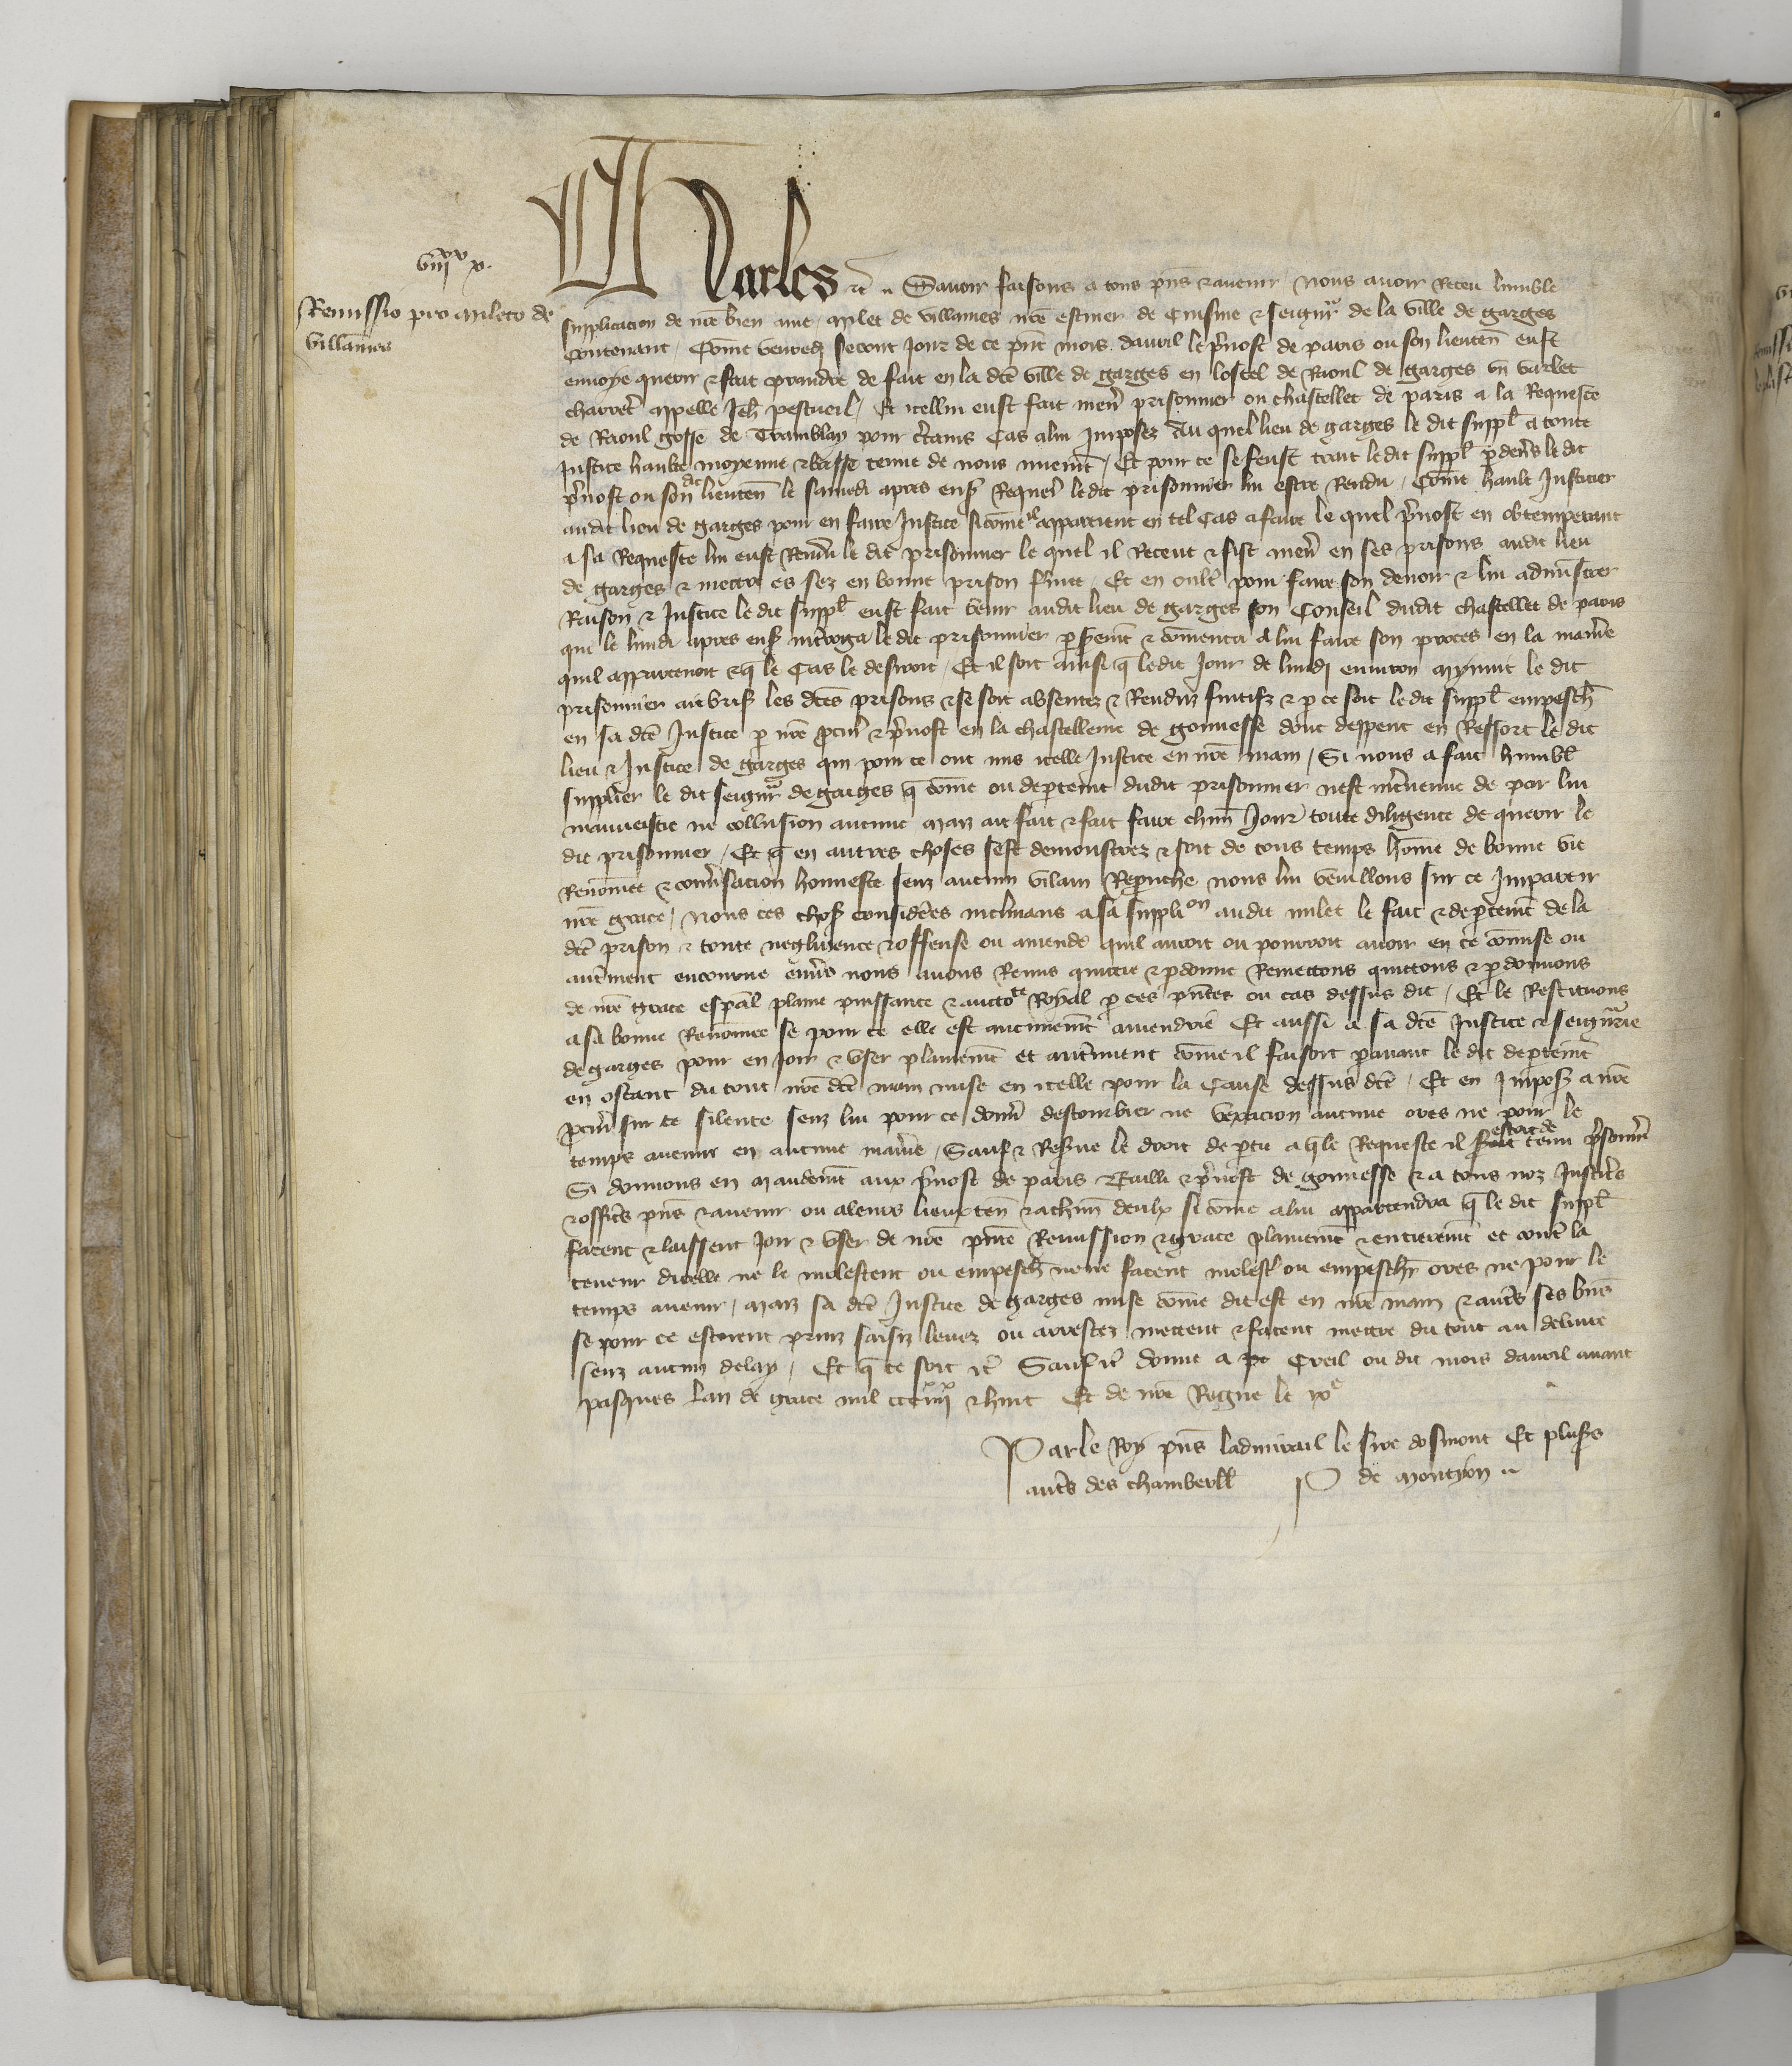 viiixx x.
Remissio pro mileto de
villames
Charles etc. Savoir faisons a tous pñs et avenir Nous avoir receu lumble
supplicacion de nrē bien amé milet de villames nrē escuier de cuisine et seignr̃ de la ville de garges
contenant Com̃e vendredi second jour de ce pñt mois davril le p̃vost de paris ou son lieuteñ eust
envoye querir et fait prandre de fait en la dc̃e ville de garges en lostel de Raoul de garges un varlet
charret̃ appelle Jeh̃ pestueil Et icellui eust fait meñ prisonnier ou chastellet de paris a la Requeste
de Raoul gosse de Tramblay pour c̃tains cas a lui imposez Au quel lieu de garges le dit suppl̃ a toute
justice haulte moyenne et basse tenue de nous nuemẽt Et pour ce se feust trait ledit suppl̃ p devs̃ le dit
p̃vost ou son dit lieuteñ le samedi apres ens̃ Requeŕ ledit prisonnier lui estre Rendu Com̃e hault Justicier
audit lieu de garges pour en faire Justice sicom̃e il appartient en tel cas a faire le quel p̃vost en obtemperant
a sa Requeste lui eust Rendu le dit prisonnier le quel il Receut et fist meñ en ses prisons audit lieu
de garges et mettre es sez en bonne prison fm̃ee Et en oult̃ pour faire son devoir et lui admĩstrer
Raison et Justice le dit suppl̃ eust fait venir audit lieu de garges son Conseil dudit chastellet de paris
qui le lundi apres ens̃ int̃roga le dit prisonnier p s̃remẽt et com̃enca a lui faire son proces en la manĩe
quil appartenoit et q̃ le cas le desiroit Et il soit ainsi q̃ ledit Jour de lundi environ mynuit le dit
prisonnier ait brisé les dc̃es prisons et se soit absentez et Renduz fuitifz et p ce soit le dit suppl̃ empesch̃
en sa dc̃e Justice p nrē pcur̃ et p̃vost en la chastellenie de gonnesse dont deppent en Ressort le dit
lieu et Justice de garges qui pour ce ont mis icelle Justice en nrē main Si nous a fait humbl̃
supplier le dit seignr̃ de garges q̃ com̃e ou depteml̃t dudit prisonnier nest int̃venue de par lui
mauvestie ne collusion aucune mais ait fait et fait faire chũn Jour toute diligence de querir le
dit prisonnier Et q̃ en autres choses sest demonstrez et soit de tous temps hom̃e de bonne vie
Renom̃ee et conṽsacion honneste senz aucun vilain Reprouche nous lui veuillons sur ce Impartir
nrē grace Nous ces chos̃ considẽes inclinans a sa suppl̃ion audit milet le fait et deptemẽt de la
dc̃e prison et toute negligence et offense ou amende quil auroit ou pourroit avoir en ce com̃ise ou
aut̃ment encourue envs̃ nous avons Remis quictie et pdonne Remettons quittons et pdonnons
de nrē grace esp̃al plaine puissance et auctote Royal p ces pñtes ou cas dessus dit Et le Restituons
a sa bonne Renom̃ee se pour ce elle est aucunemẽt amendrie Et aussi a sa dc̃e Justice et seignr̃ie
de garges pour en Joir et user plainemẽt et aut̃ment com̃e il faisoit pavant le dit deptemẽt
en ostant du tout nrē dc̃e main mise en icelle pour la cause dessus dc̃e Et en Impos̃ a nrē
pcur̃ sur ce silence senz lui pour ce doñ destourbier ne vexacion aucune ores ne pour le
temps avenir en aucune manĩe Sauf et Res̃ve le droit de ptie a q̃le Requeste il estoit de tenu p̃sonñ
Si donnons en mandemẽt aux p̃vost de paris Bailli et p̃vost de gonnesse et a tous noz Justic̃s
et offic̃s pñs et avenir ou a leurs lieux teñ et a chũn deulx si com̃e a lui appartendra q̃ le dit suppl̃
facent et laissent Joir et user de nrē pñte Remission et grace plainemẽt et entieremẽt et cont̃ la
teneur dicelle ne le molestent ou empesch̃ ne ne facent molest̃ ou empesch̃r ores ne pour le
temps avenir mais sa dc̃e Justice de garges mise com̃e dit est en nrē main et aut̃s ses bñs
se pour ce estoient prinz saisiz levez ou arrestez mettent et facent mettre du tout au delivre
senz aucun delay Et q̃ ce soit etc̃ Sauf etc̃ donne a Creil ou dit mois davril avant
pasques Lan de grace mil ccciiiixx et huit Et de nrē Regne le ixe
Par le Roy pñs ladmirail le sire dosmont Et plus̃s
aut̃s des chambell̃ P de montyon